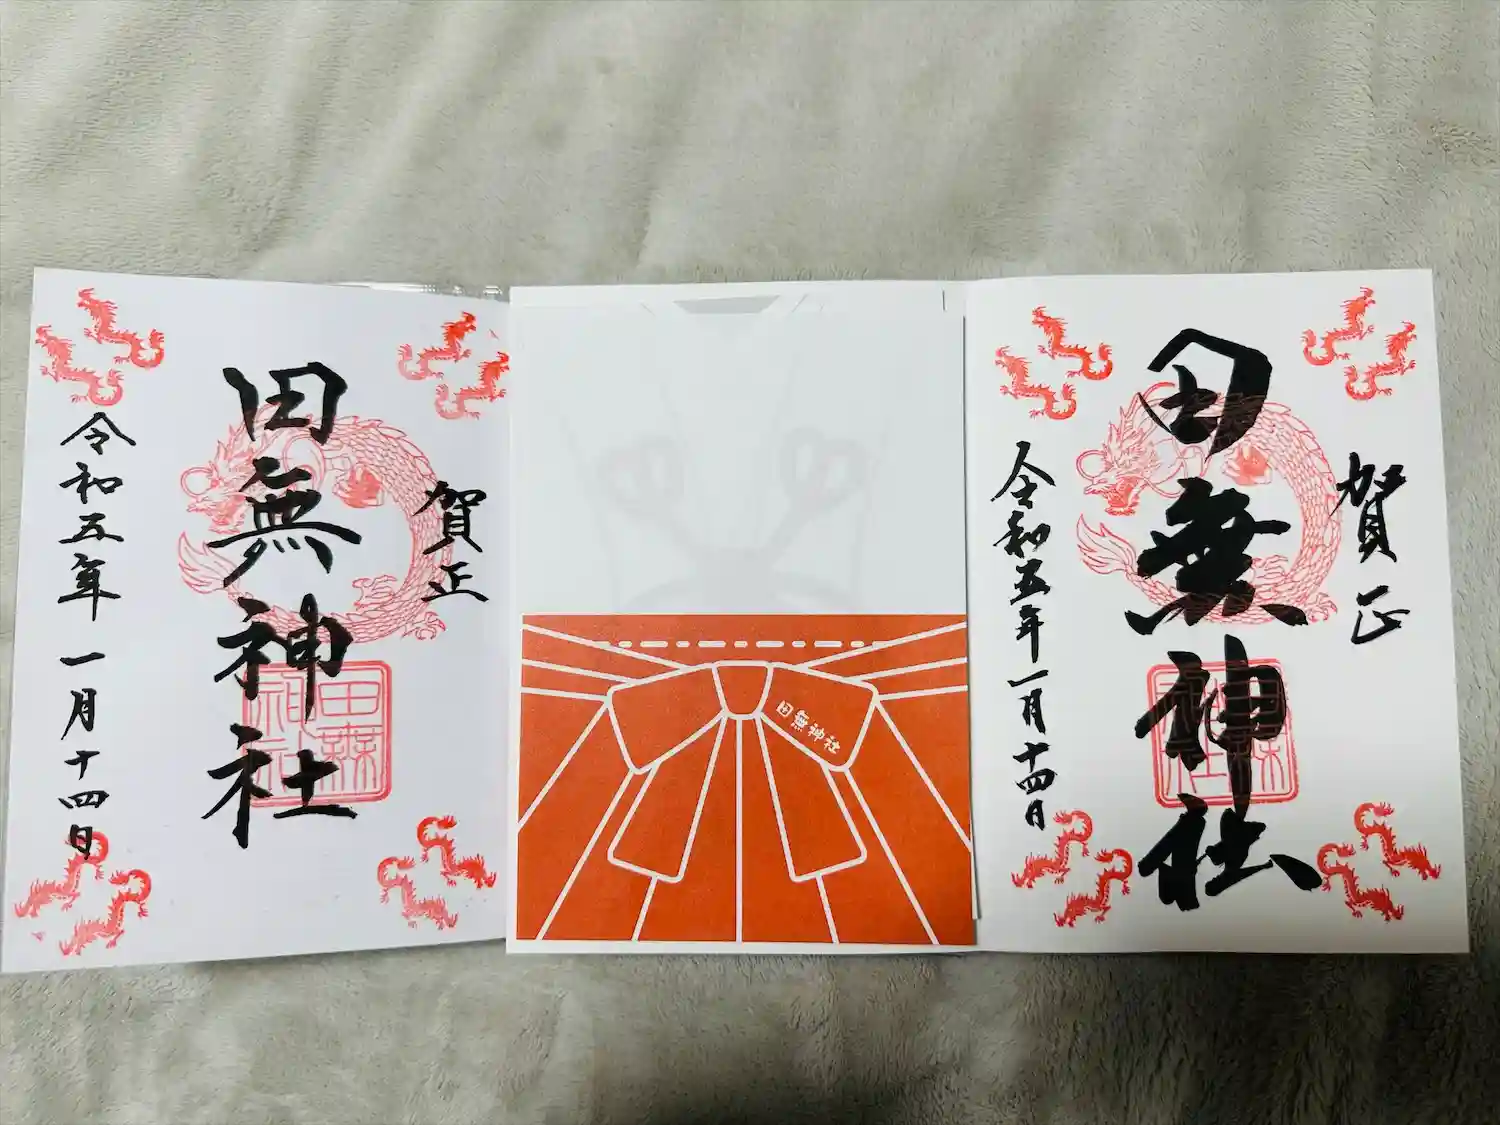 賀正
田無神社
令和五年 一月十四日
田無神社
田無神社
賀正
田無神社
令和五年一月十四日
田無神社